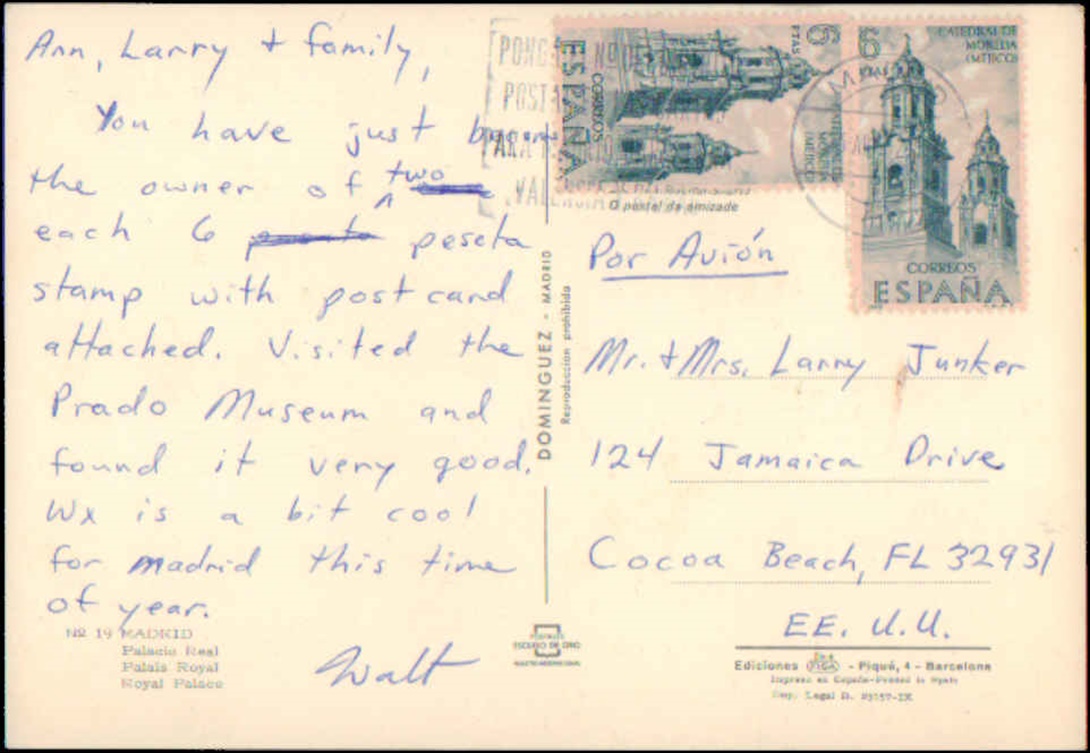 Ann, Larry + family,
You have just become
the owner of two
each 6 peseta
stamp with post card
attached. Visited the
Prado Museum and
found it very good.
Wx is a bit cool
for madrid this time
of year.
Walt
Nº 19 MADRID
Palacio Real
Palais Royal
Royal Palace
DOMINGUEZ - MADRID
Reproducción prohibida
ESPAÑA
CORREOS
6
PTAS
6
PTAS
CATEDRAL DE
MORELIA
(MEJICO)
CORREOS
ESPAÑA
O postal da amizade
Por Avión
Mr. + Mrs. Larry Junker
124 Jamaica Drive
Cocoa Beach, FL 32931
EE. U.U.
ESCUDO DE ORO
Ediciones - Piqué, 4 - Barcelona
Impreso en España-Printed in Spain
Dep. Legal B.